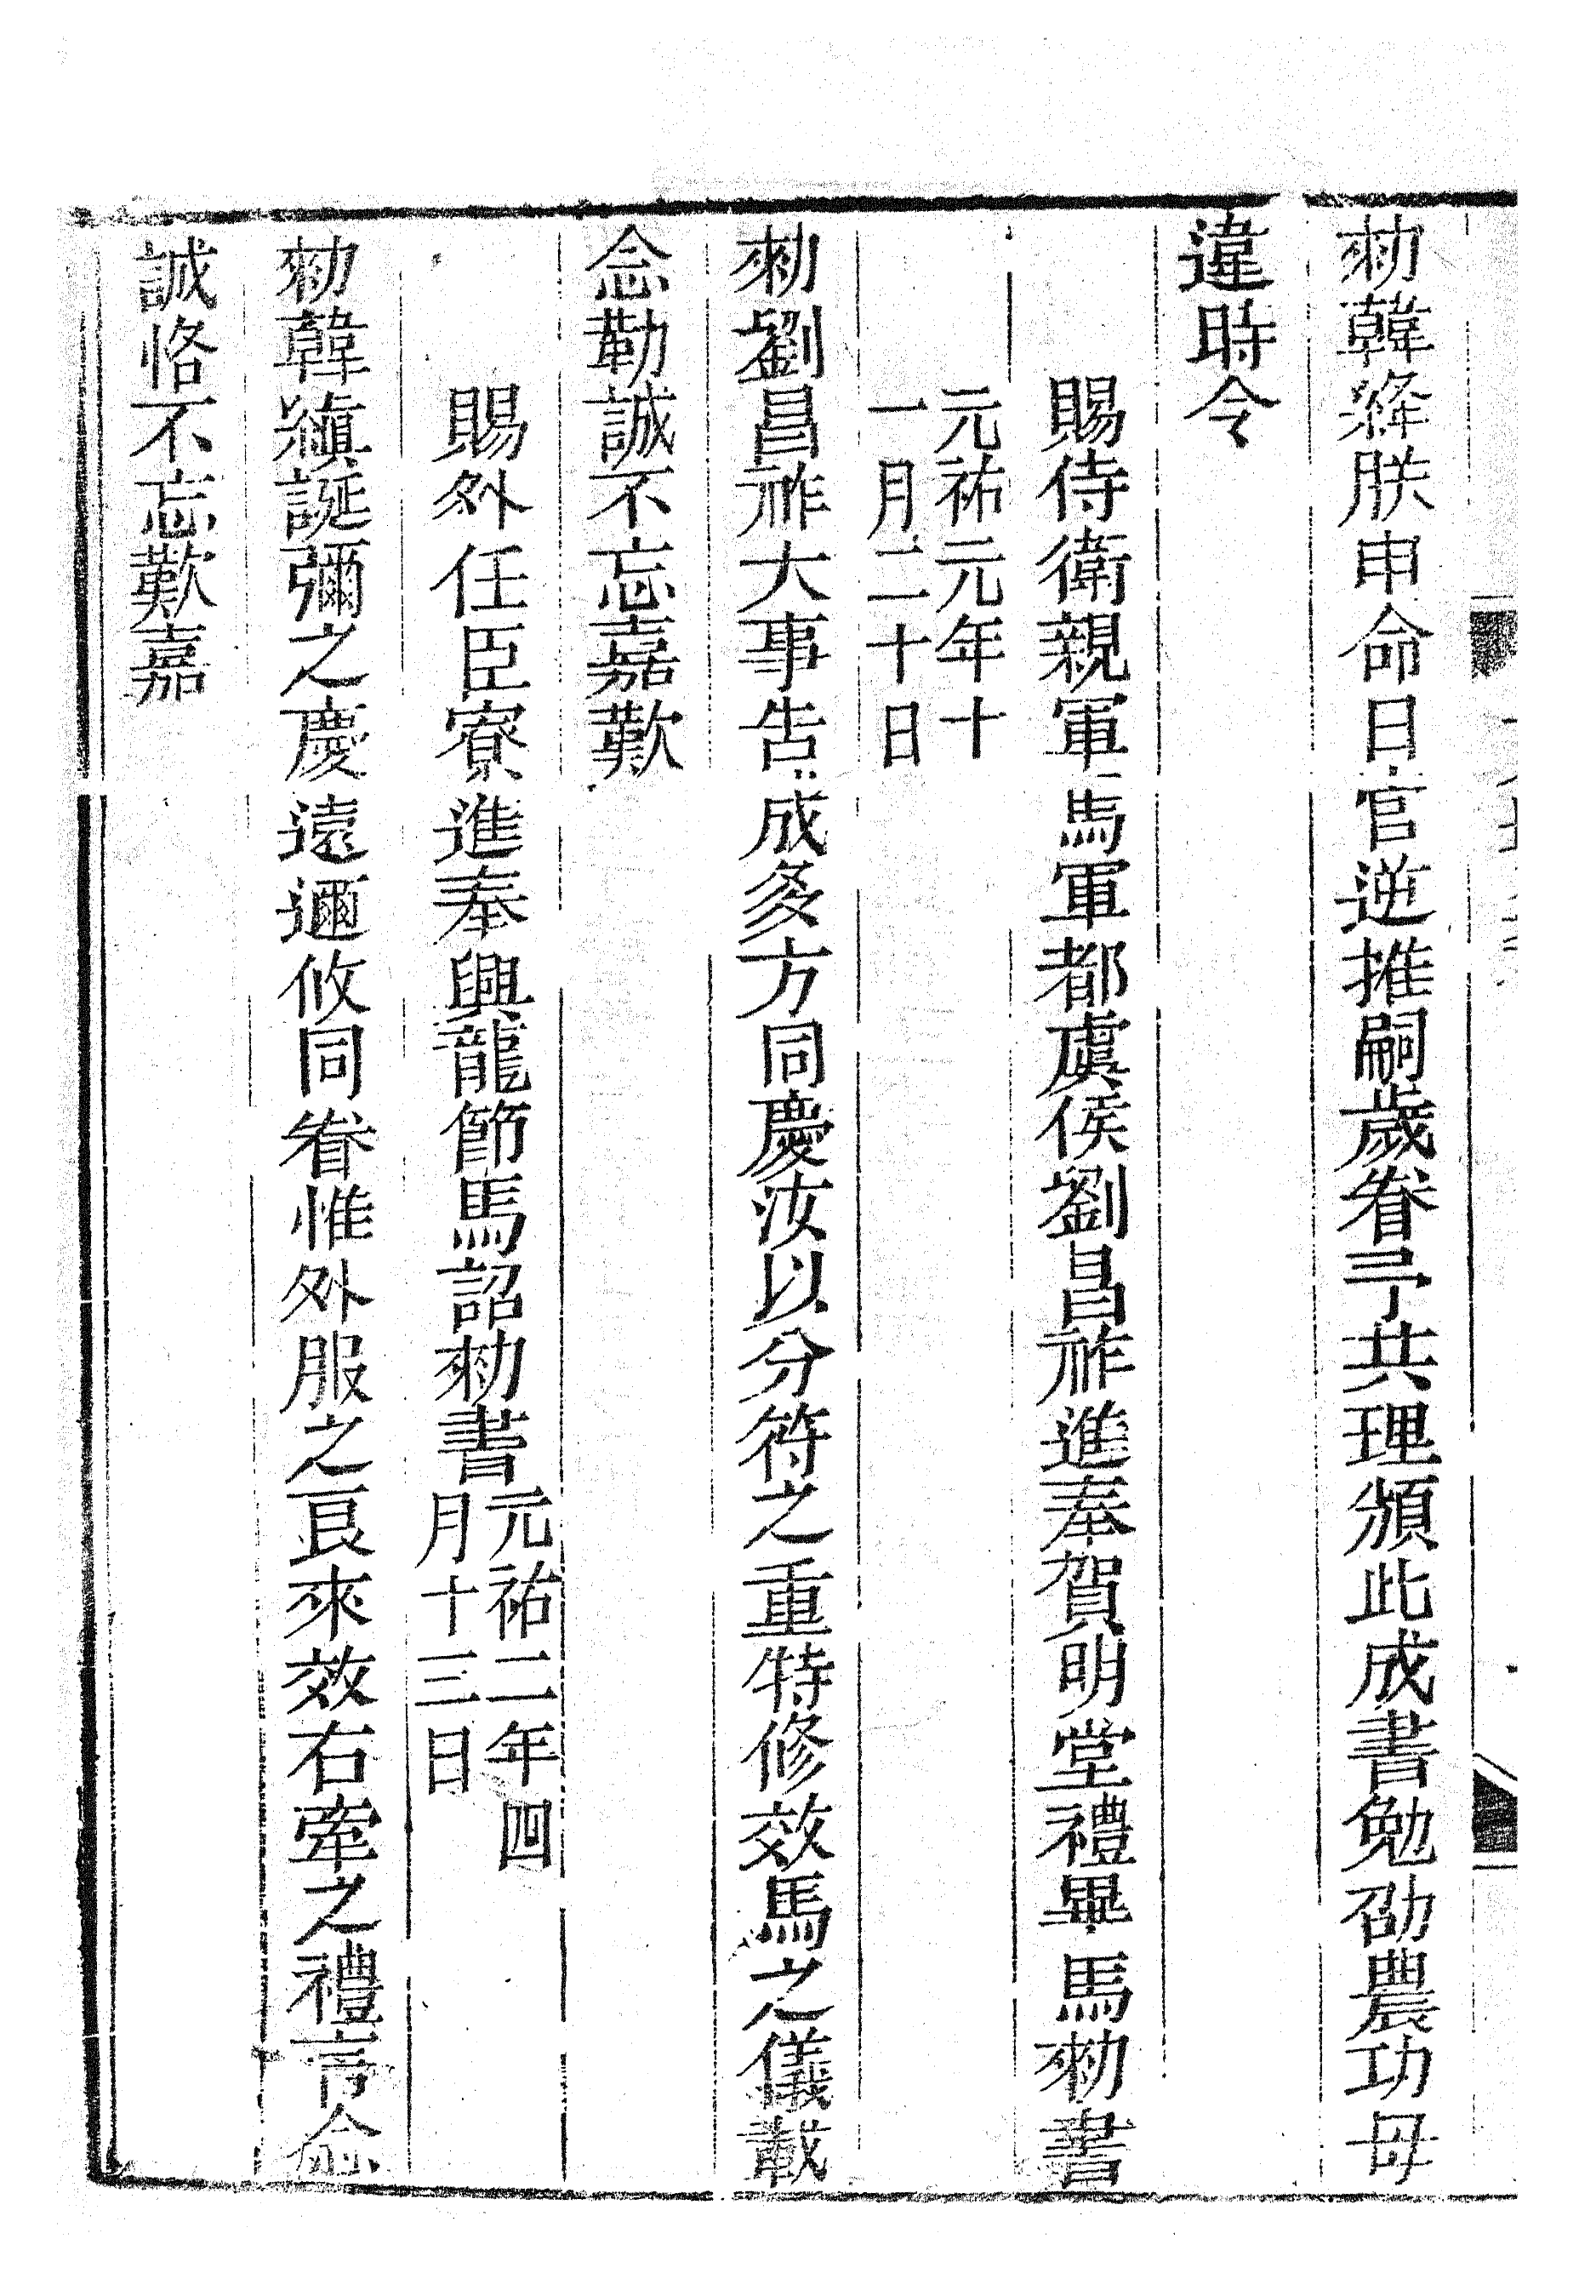 勑韓絳朕申命日官逆推嗣歲眷予共理頒此成書勉劭農功毋
違時令
賜侍衛親軍馬軍都虞侯劉昌祚進奉賀明堂禮畢馬勑書
元祐元年十
一月二十日
勑劉昌祚大事告成多方同慶汝以分符之重特修效馬之儀載
念勤誠不忘嘉歎
賜外任臣寮進奉興龍節馬詔勑書元祐二年四
月十三日
勑韓縝誕彌之慶遠邇攸同眷惟外服之良來效右牽之禮言念
誠恪不忘歎嘉